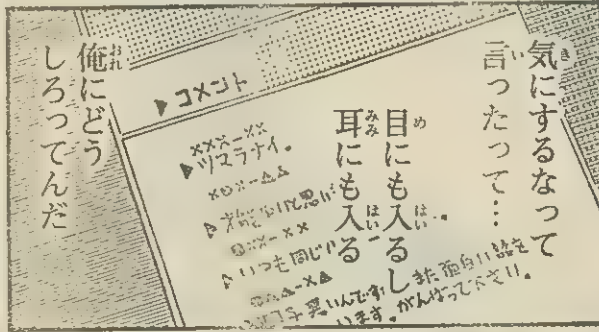 気にするなって
言ったって…
目にも入るし
耳にも入る
俺にどう
しろってんだ
▶コメント
×××-××
▶ツマラナイ。
×○×-△△
◎××-××
▶いつも同じ
◎△△-×△
また面白い話を
います。がんばって下さい。